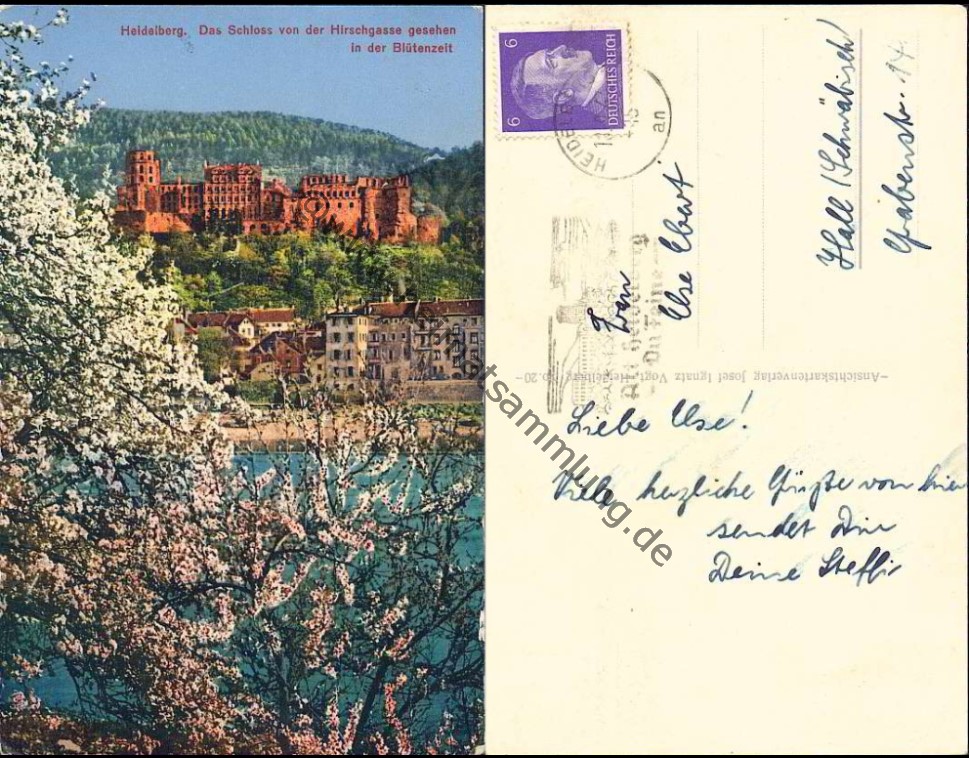 Heidelberg. Das Schloss von der Hirschgasse gesehen
in der Blütenzeit
6 6
DEUTSCHES REICH
HEIDELB
an
Alt Heidelberg
Du Feine
Ilse Ebert
Hall /Schwäbisch/
Grabenstr. 14
-Ansichtskartenverlag Josef Ignatz Vogt, Heidelberg No. 20-
Liebe Ilse!
Viele herzliche Grüße von hier
sendet Dir
Deine Steffi
tsammlung.de